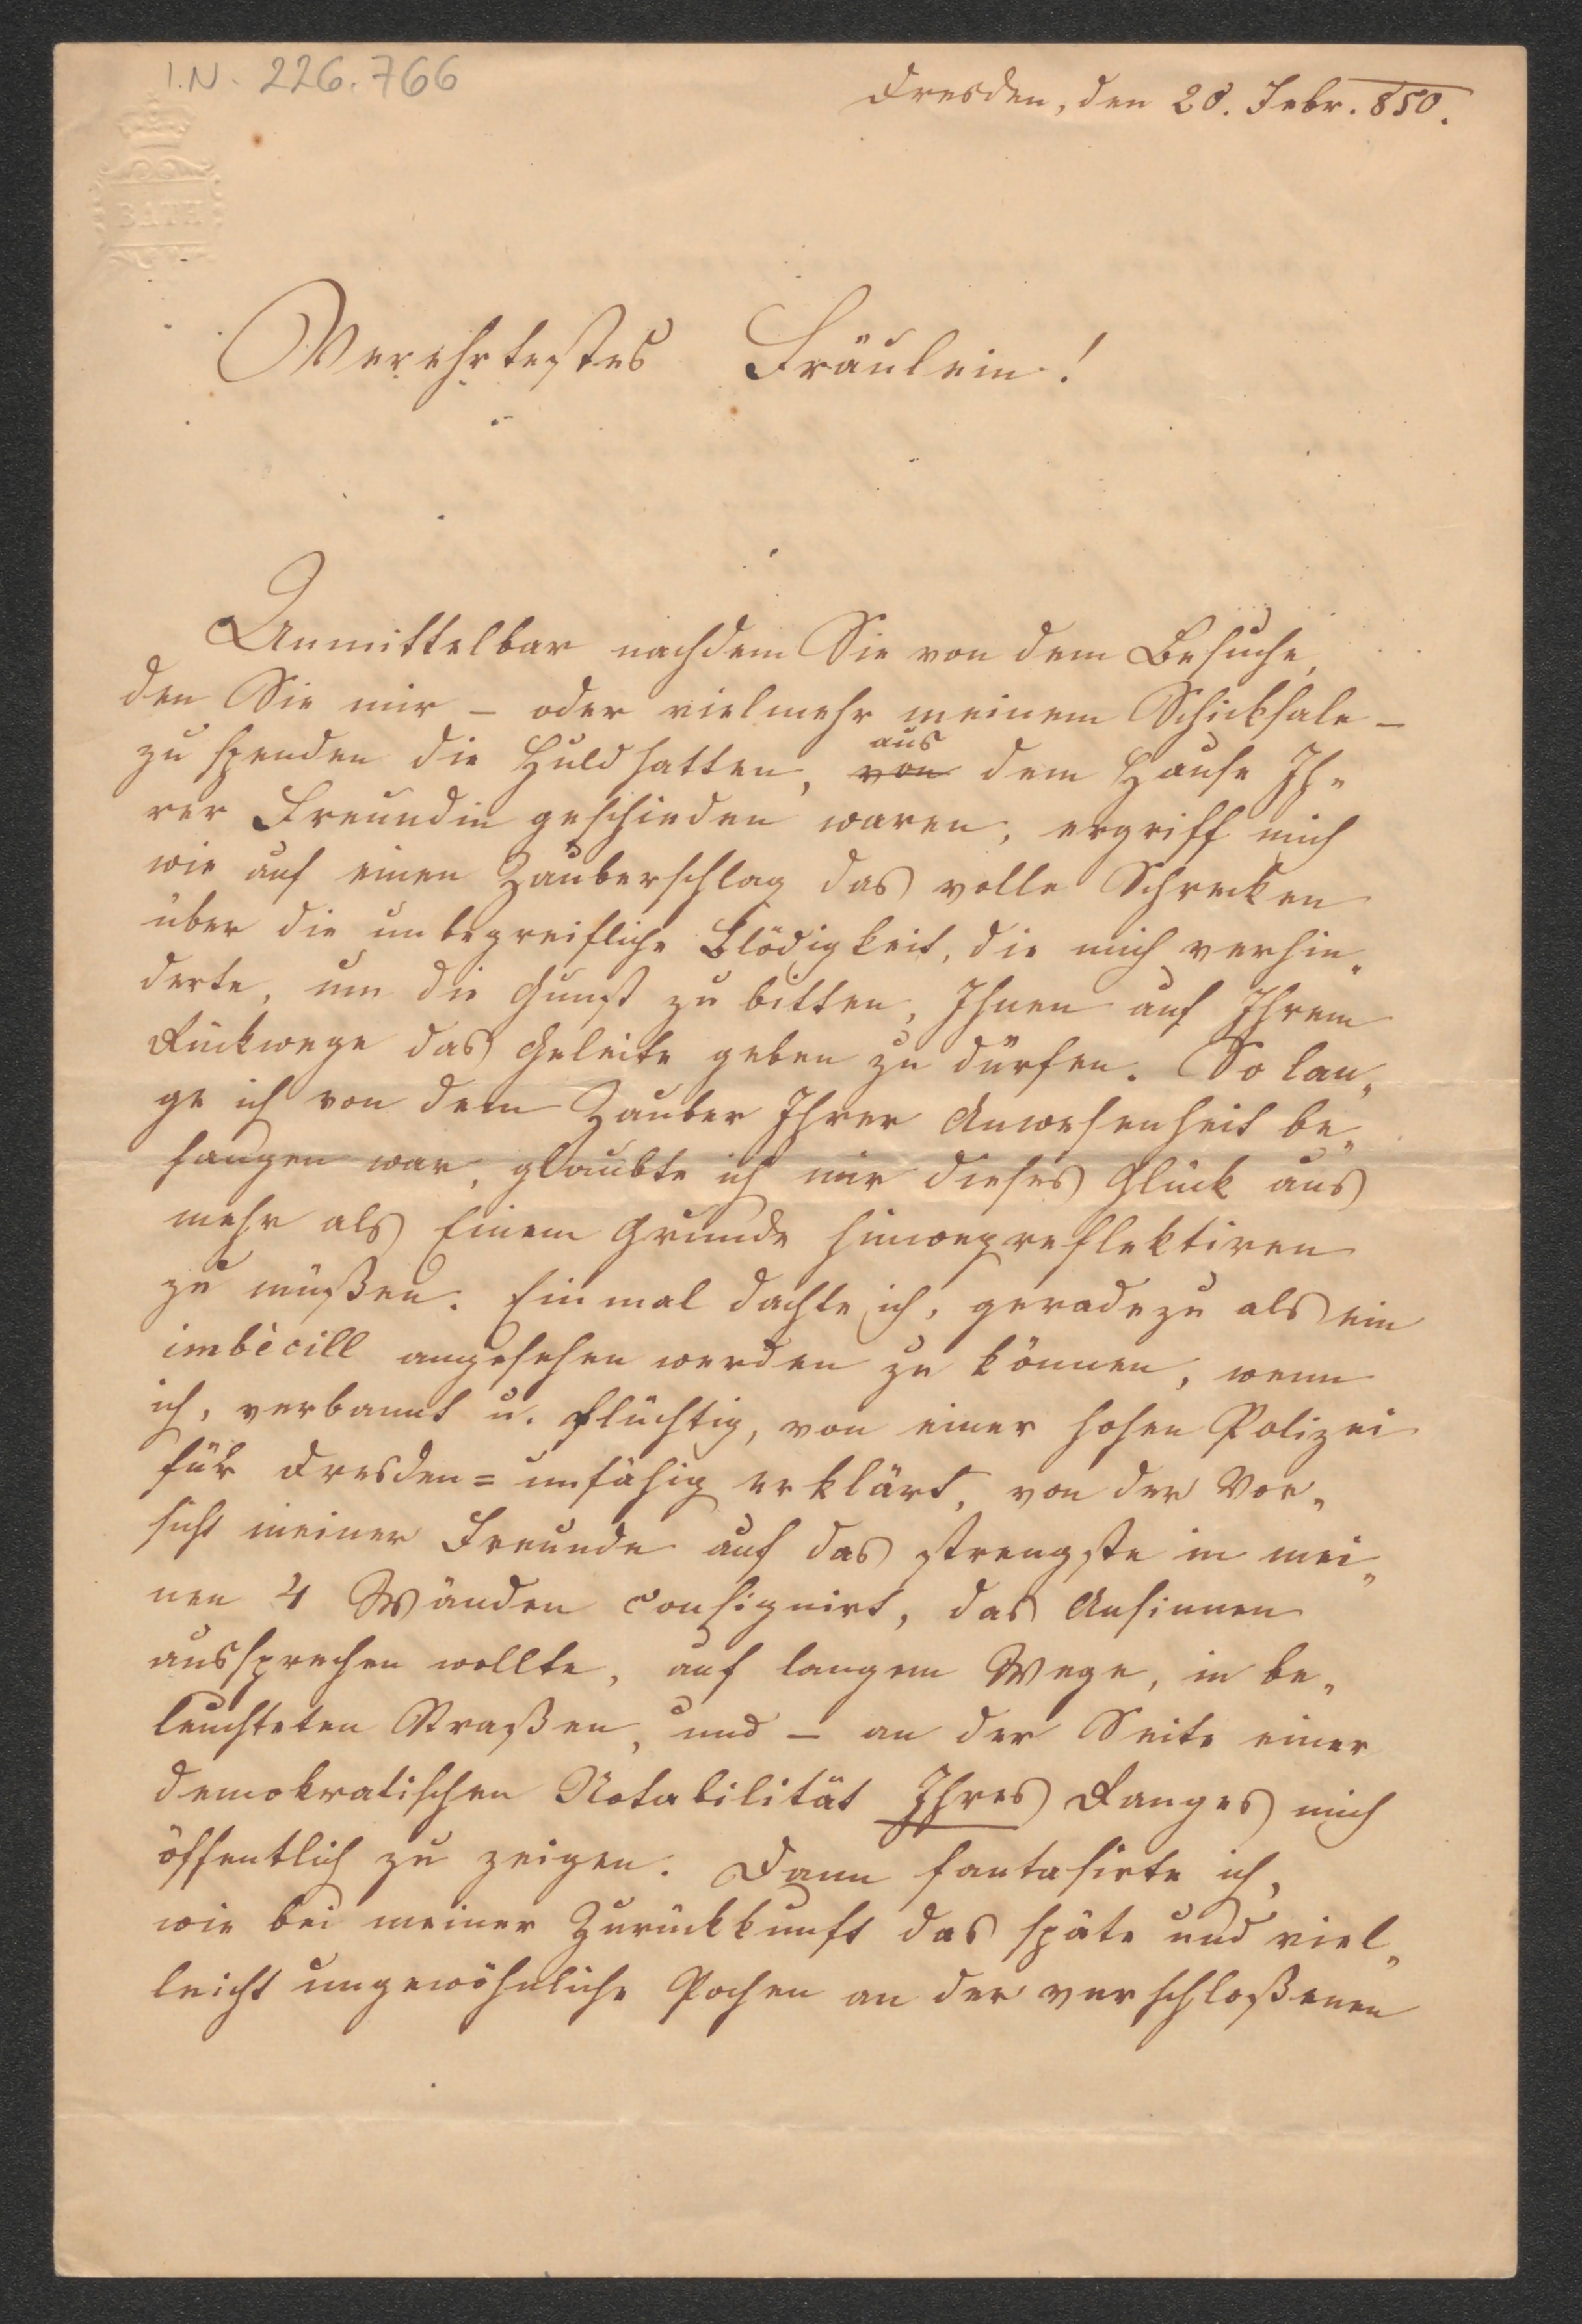 I.N. 226.766
Dresden, den 20. Febr. 850.
BATH
Verehrtestes Fräulein!
Unmittelbar nachdem Sie von dem Besuche,
den Sie mir – oder vielmehr meinem Schicksale –
aus
zu spenden die Huld hatten, von dem Hause Ih=
rer Freundin geschieden waren, ergriff mich
wie auf einen Zauberschlag das volle Schrecken
über die unbegreifliche Blödigkeit, die mich verhin=
derte, um die Gunst zu bitten, Ihnen auf Ihrem
Rückwege das Geleite geben zu dürfen. So lan=
ge ich von dem Zauber Ihrer Anwesenheit be=
fangen war, glaubte ich mir dieses Glück aus
mehr als Einem Grunde hinwegreflektiren
zu müßen. Einmal dachte ich, geradezu als ein
imbècill angesehen werden zu können, wenn
ich, verbannt u. flüchtig, von einer hohen Polizei
für Dresden=unfähig erklärt, von der Vor=
sicht meiner Freunde auf das strengste in mei=
nen 4 Wänden consignirt, das Ansinnen
aussprechen wollte, auf langem Wege, in be=
leuchteten Straßen, und – an der Seite einer
demokratischen Notabilität Ihres Ranges mich
öffentlich zu zeigen. Dann fantasirte ich,
wie bei meiner Zurückkunft das späte und viel=
leicht ungewöhnliche Pochen an der verschloßenen